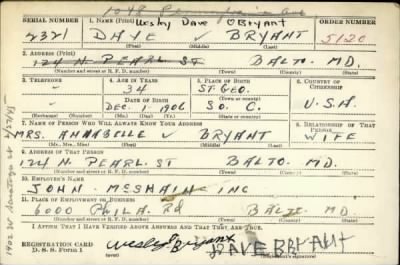 1048 Pennsylvania Ave
SERIAL NUMBER 1. NAME (Print) Weshy Dave OBryant ORDER NUMBER
2321 DAVE V BRYANT 5120
(First) (Middle) (Last)
2. ADDRESS (Print)
124 N. PEARL ST BALTO. MD.
(Number and street or R. F. D. number) (Town) (County) (State)
3. TELEPHONE 4. AGE IN YEARS 5. PLACE OF BIRTH 6. COUNTRY OF CITIZENSHIP
34 ST. GEO.
DATE OF BIRTH (Town or county)
DEC. 1 1906 SO. C. U.S.A
(Exchange) (Number) (Mo.) (Day) (Yr.) (State or country)
7. NAME OF PERSON WHO WILL ALWAYS KNOW YOUR ADDRESS 8. RELATIONSHIP OF THAT PERSON
MRS. ANNABELLE V BRYANT WIFE
(Mr., Mrs., Miss) (First) (Middle) (Last)
9. ADDRESS OF THAT PERSON
124 N. PEARL ST BALTO. MD.
(Number and street or R. F. D. number) (Town) (County) (State)
10. EMPLOYER'S NAME
JOHN. MCSHAIN INC
11. PLACE OF EMPLOYMENT OR BUSINESS
6000 PHILA. Rd BALTO MD.
(Number and street or R. F. D. number) (Town) (County) (State)
I AFFIRM THAT I HAVE VERIFIED ABOVE ANSWERS AND THAT THEY ARE TRUE.
REGISTRATION CARD
D. S. S. Form 1
Wesley Bryant DAVE BRYANT